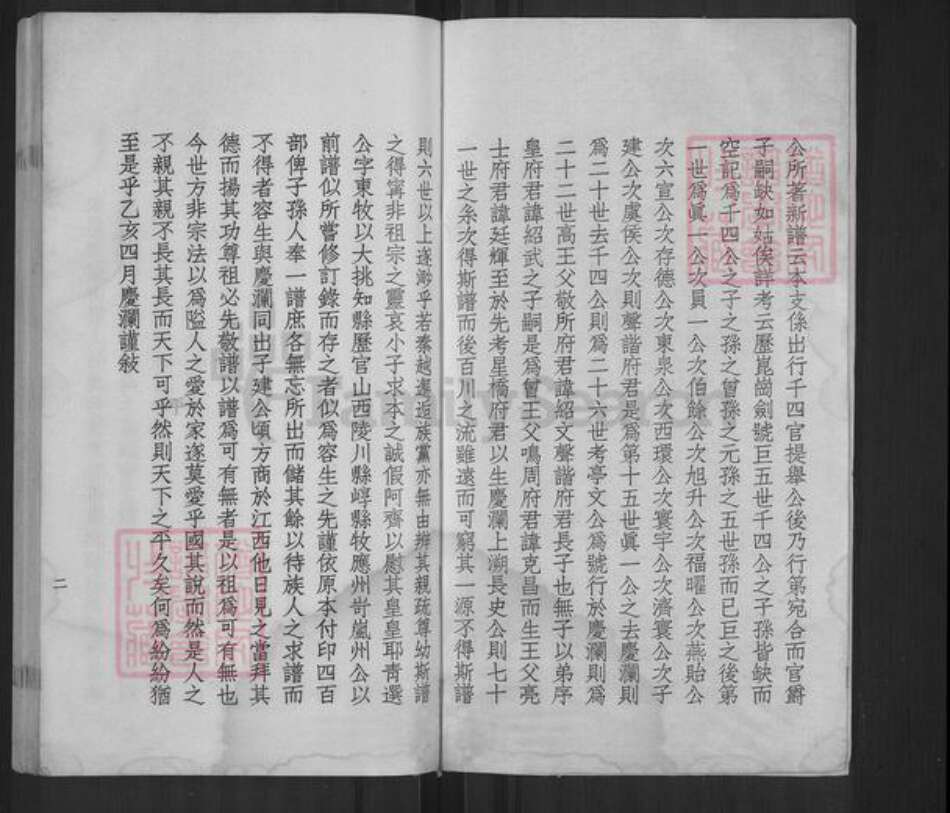 公所著新譜云本支係出行千四官提舉公後乃行第宛合而官爵
子嗣缺如姑俟詳考云歷崑崗劍號巨五世千四公之子孫皆缺而
空記爲千四公之子之孫之曾孫之元孫之五世孫而已巨之後第
一世爲眞一公次員一公次伯餘公次旭升公次福曜公次燕貽公
次六宣公次存德公次東泉公次西環公次寰宇公次濟寰公次子
建公次虞侯公次則聲諧府君是爲第十五世眞一公之去慶瀾則
爲二十世去千四公則爲二十六世考亭文公爲號行於慶瀾則爲
二十二世高王父敬所府君諱紹文聲諧府君長子也無子以弟序
皇府君諱紹武之子嗣是爲曾王父鳴周府君諱克昌而生王父亮
士府君諱廷輝至於先考星橋府君以生慶瀾上溯長史公則七十
一世之系次得斯譜而後百川之流雖遠而可窮其一源不得斯譜
則六世以上遂渺乎若秦越邂逅族黨亦無由辨其親疏尊幼斯譜
之得寧非祖宗之靈哀小子求本之誠假阿齊以慰其皇皇耶靑選
公字東牧以大挑知縣歷官山西陵川縣崞縣牧應州岢嵐州公以
前譜似所嘗修訂錄而存之者似爲容生之先謹依原本付印四百
部俾子孫人奉一譜庶各無忘所出而儲其餘以待族人之求譜而
不得者容生與慶瀾同出子建公頃方商於江西他日見之當拜其
德而揚其功尊祖必先敬譜以譜爲可有無者是以祖爲可有無也
今世方非宗法以爲隘人之愛於家遂莫愛乎國其說而然是人之
不親其親不長其長而天下可乎然則天下之平久矣何爲紛紛猶
至是乎乙亥四月慶瀾謹敍
二